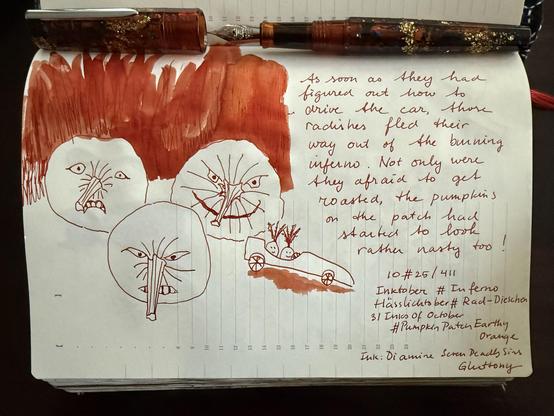 As soon as they had
figured out how to
drive the car, those
radishes fled their
way out of the burning
inferno. Not only were
they afraid to get
roasted, the pumpkins
on the patch had
started to look
rather nasty too!
10#25/411
Inktober # Inferno
Hässlichtober # Rad-Dieschen
31 Inks of October
#Pumpkin Patch Earthy
Orange
Ink: Diamine Seven Deadly Sins
Gluttony